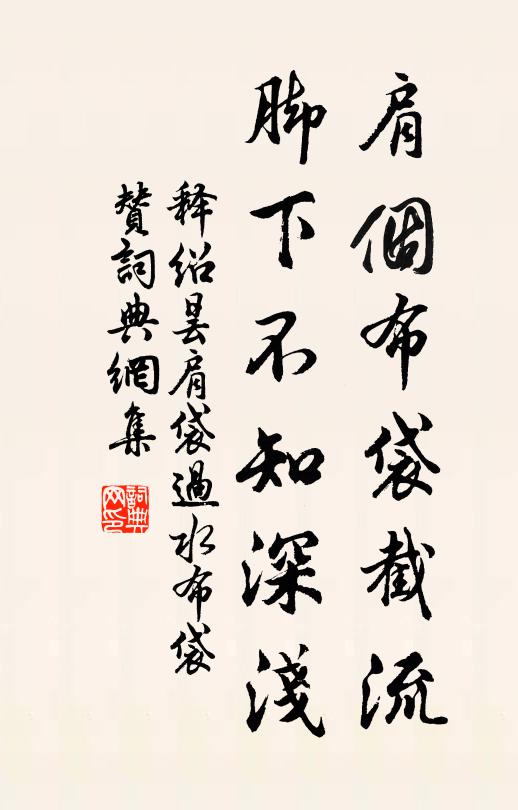 肩個布袋截流
脚下不知深淺
释紹曇肩袋過水布袋
贊詞典網集
詞典网印